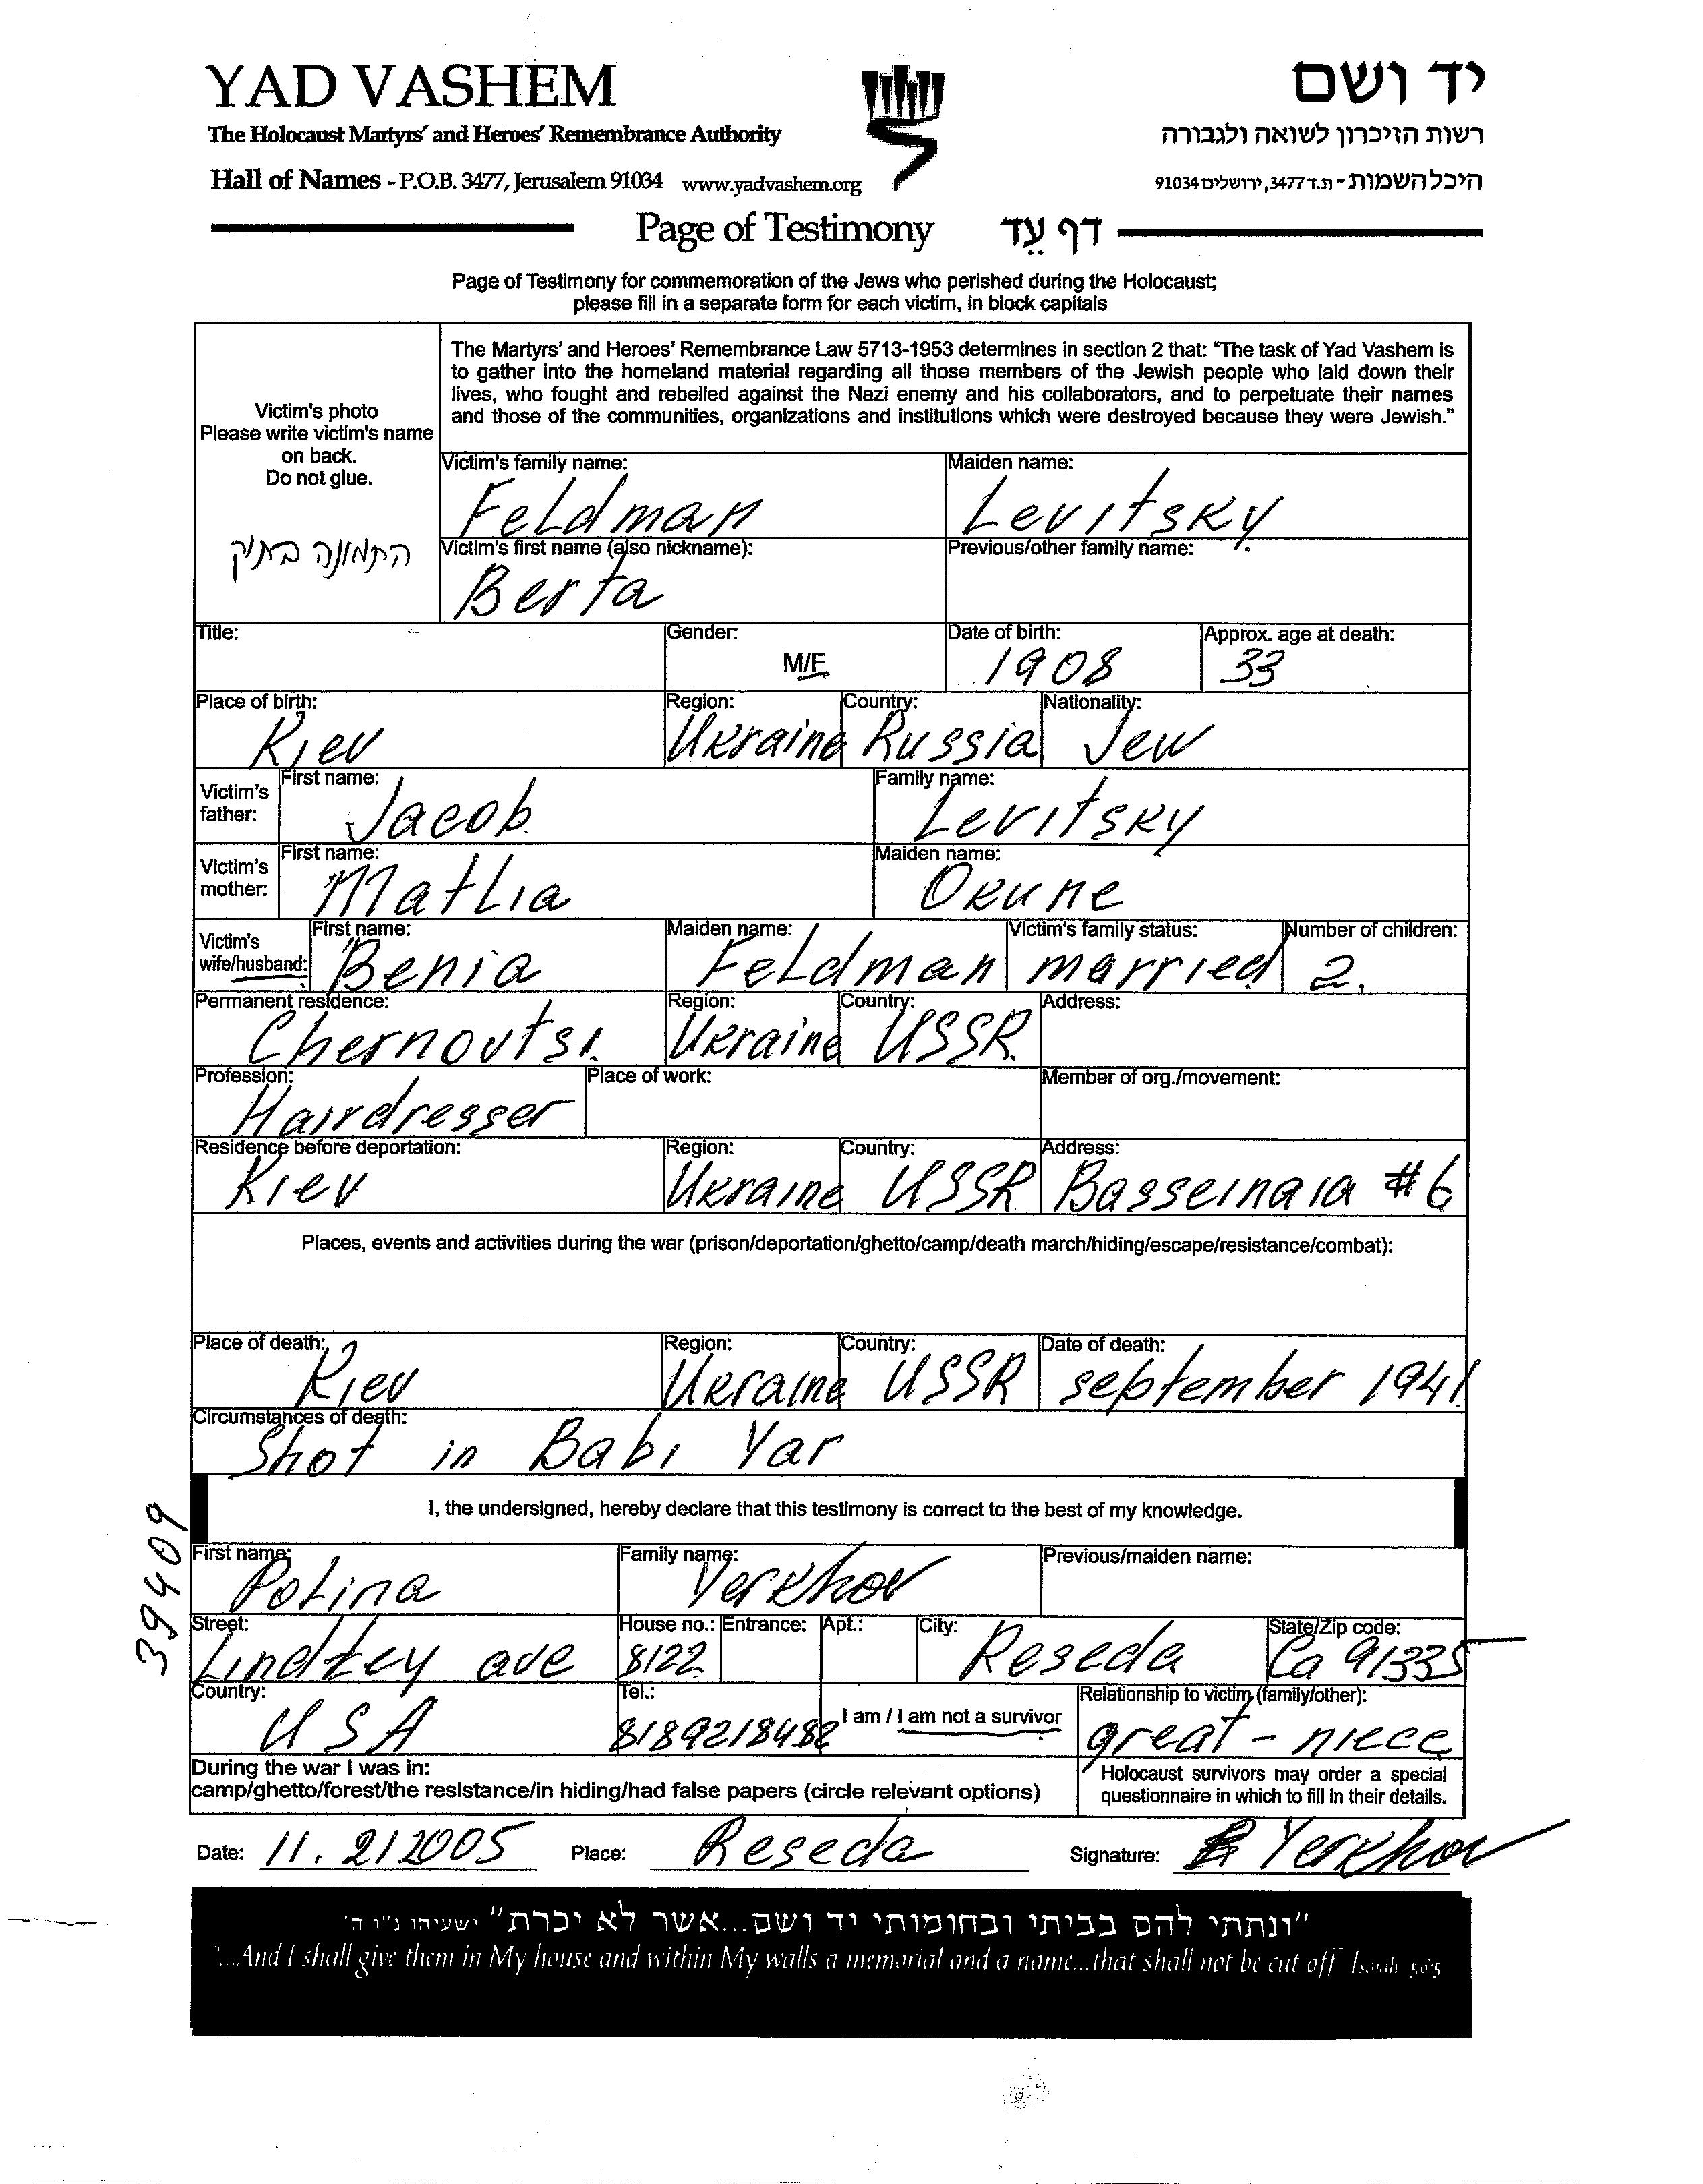 YAD VASHEM
יד ושם
The Holocaust Martyrs' and Heroes' Remembrance Authority
רשות הזיכרון לשואה ולגבורה
Hall of Names - P.O.B. 3477, Jerusalem 91034 www.yadvashem.org
היכל השמות - ת.ד 3477, ירושלים 91034
Page of Testimony דף עֵד
Page of Testimony for commemoration of the Jews who perished during the Holocaust;
please fill in a separate form for each victim, in block capitals
Victim's photo
Please write victim's name
on back.
Do not glue.
התמונה בתיק
The Martyrs' and Heroes' Remembrance Law 5713-1953 determines in section 2 that: "The task of Yad Vashem is
to gather into the homeland material regarding all those members of the Jewish people who laid down their
lives, who fought and rebelled against the Nazi enemy and his collaborators, and to perpetuate their names
and those of the communities, organizations and institutions which were destroyed because they were Jewish."
Victim's family name: Maiden name:
Feldman Levitsky
Victim's first name (also nickname): Previous/other family name:
Berta
Title: Gender: Date of birth: Approx. age at death:
M/F 1908 33
Place of birth: Region: Country: Nationality:
Kiev Ukraine Russia Jew
Victim's father: First name: Family name:
Jacob Levitsky
Victim's mother: First name: Maiden name:
Matlia Okune
Victim's wife/husband: First name: Maiden name: Victim's family status: Number of children:
Benia Feldman married 2.
Permanent residence: Region: Country: Address:
Chernovtsi. Ukraine USSR
Profession: Place of work: Member of org./movement:
Hairdresser
Residence before deportation: Region: Country: Address:
Kiev Ukraine USSR Basseinaia #6
Places, events and activities during the war (prison/deportation/ghetto/camp/death march/hiding/escape/resistance/combat):
Place of death: Region: Country: Date of death:
Kiev Ukraine USSR september 1941.
Circumstances of death:
Shot in Babi Yar
I, the undersigned, hereby declare that this testimony is correct to the best of my knowledge.
39409
First name: Family name: Previous/maiden name:
Polina Yerkhov
Street: House no.: Entrance: Apt.: City: State/Zip code:
Lindley ave 8122 Reseda Ca 91335
Country: Tel.: I am / I am not a survivor Relationship to victim (family/other):
USA 8189218482 great-niece
During the war I was in:
camp/ghetto/forest/the resistance/in hiding/had false papers (circle relevant options)
Holocaust survivors may order a special
questionnaire in which to fill in their details.
Date: 11.212005 Place: Reseda Signature: Yerkhov
"ונתתי להם בביתי ובחומותי יד ושם...אשר לא יכרת" ישעיהו נ"ו ה'
"...And I shall give them in My house and within My walls a memorial and a name...that shall not be cut off" Isaiah 56:5